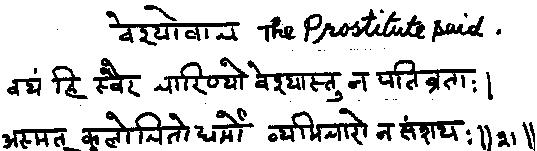 वेश्योवाच The Prostitute said.
वयं हि स्वैर चारिण्यो वेश्यास्तु न पतिव्रताः।
अस्मत् कुलोचितो धर्मो व्यभिचारो न संशयः॥२१॥